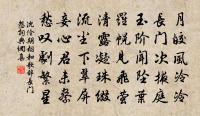 月皎風泠泠
長門次掖庭
玉階聞墜葉
羅幌見飛螢
清露凝珠綴
流塵下翠屏
妾心君未察
愁叹劇繁星
沈佺期相和歌辭長門
怨詞典網集